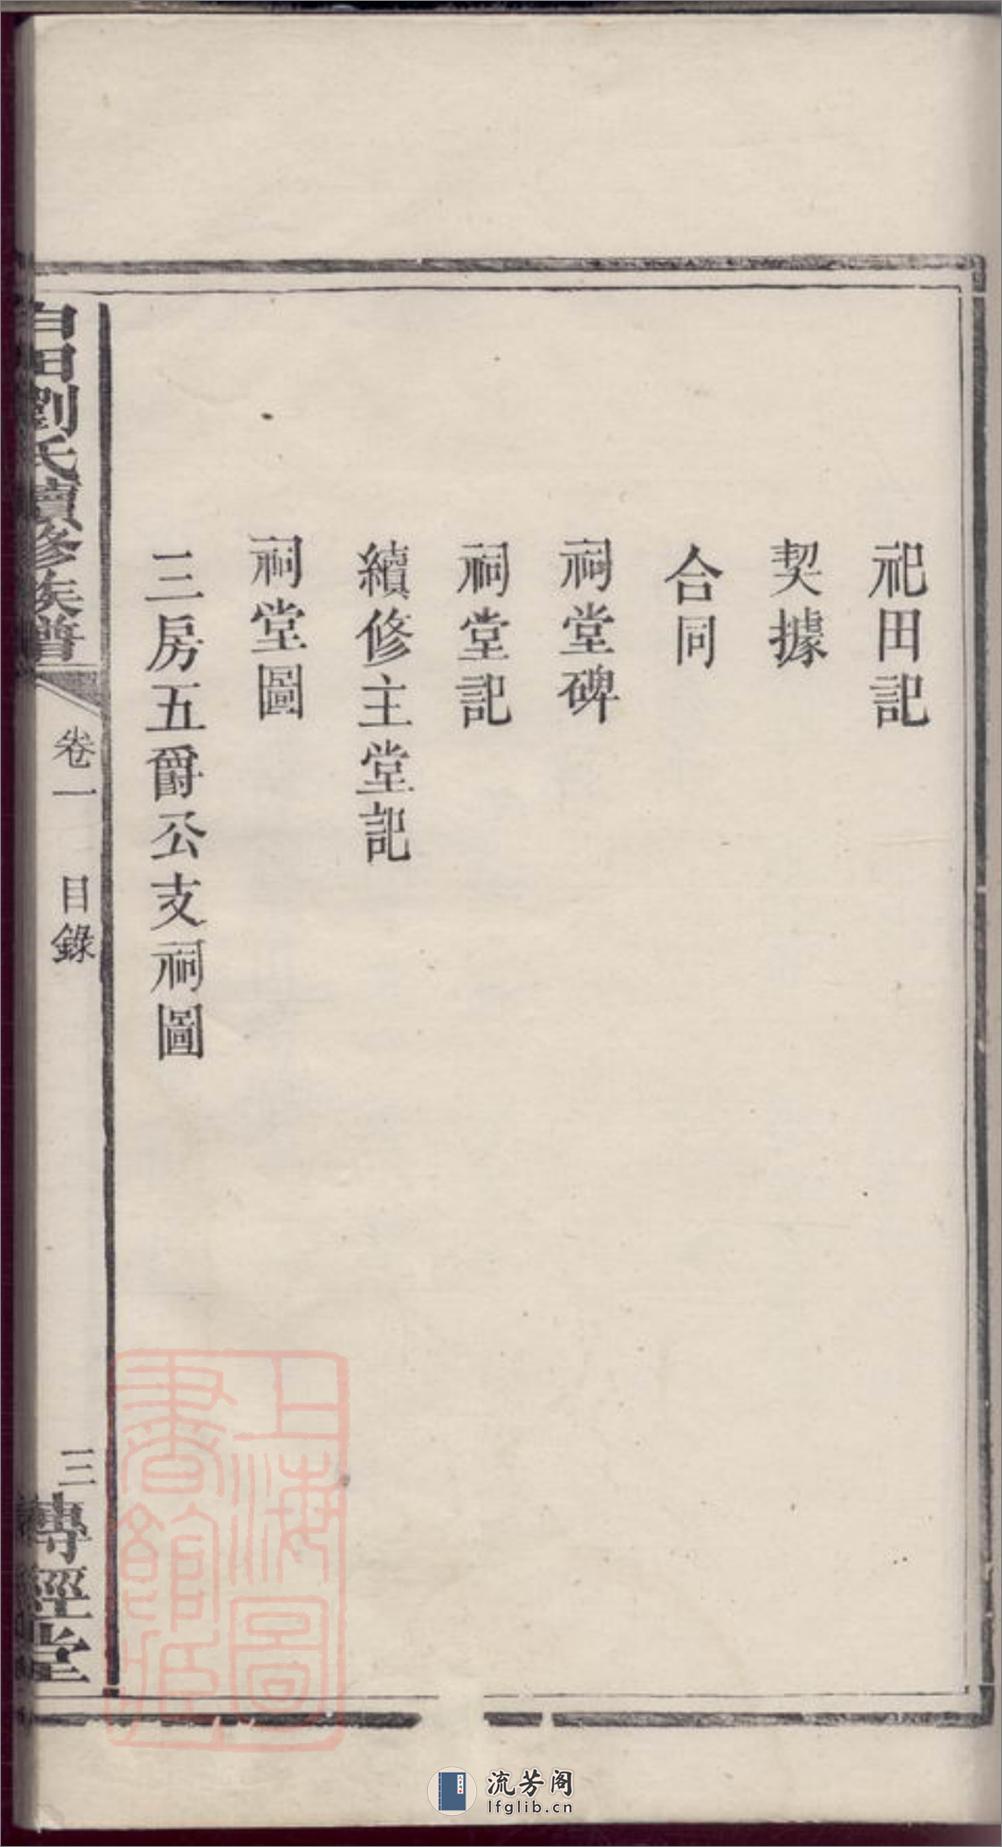 祀田記
契據
合同
祠堂碑
祠堂記
續修主堂記
祠堂圖
三房五爵公支祠圖
白田劉氏續修族譜
卷一 目錄
三
傳經堂
上海圖
書館藏
流芳阁
lfglib.cn